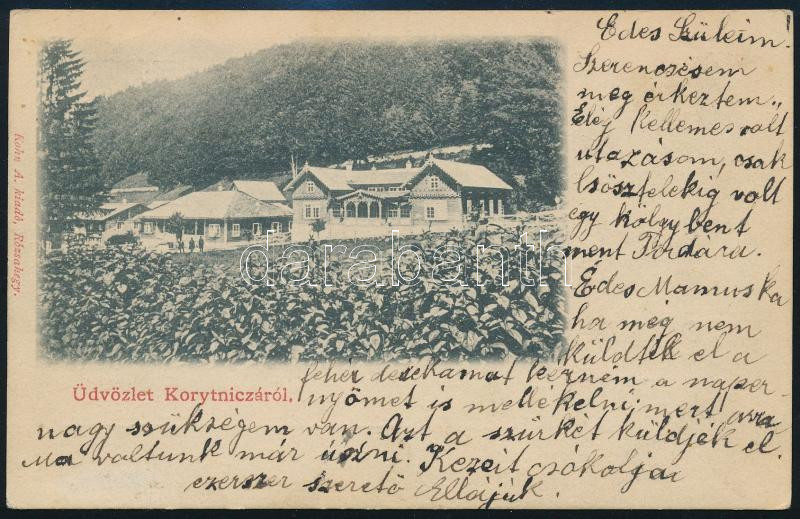 Edes Szüleim.
Szerencsésem
meg érkeztem„
Elég kellemes volt
utazásom, csak
volt
egy hölgy bent
ment Tordára.
Édes Mamuska
ha még nem
küldték el a
fehér kérném a naper-
nyőmet is mellékelni, mert arra
nagy szükségem van. Azt a szürkét küldjék el.
Ma voltunk már úszni. Kezeit csókolja
ezerszer szerető Ellájuk.
Üdvözlet Korytniczáról,
Kohn A. kiadó, Rózsahegy.
darabanth